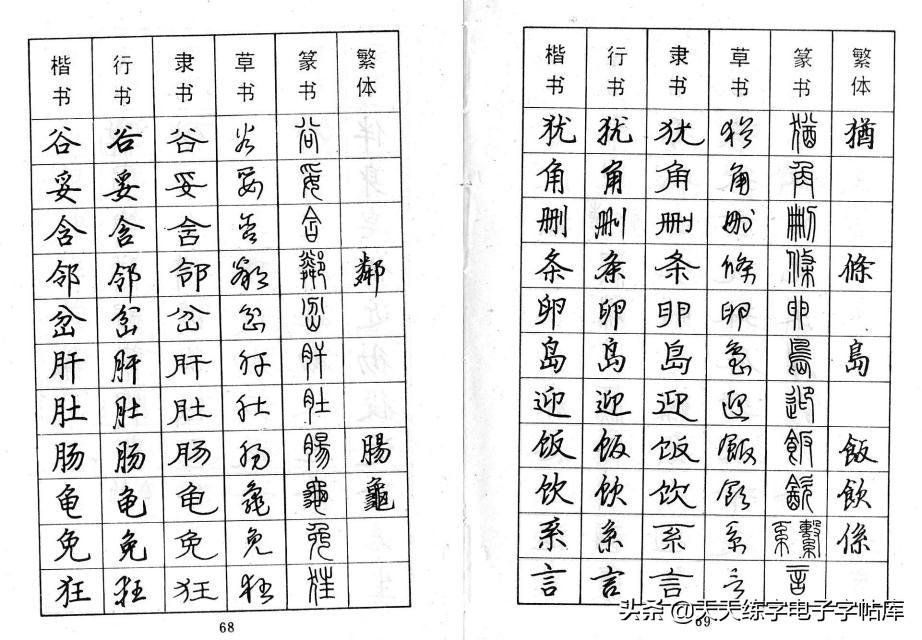 楷书 行书 隶书 草书 篆书 繁体
谷 谷 谷 谷 谷
妥 妥 妥 妥 妥
含 含 含 含 含
邻 邻 邻 鄰 鄰 鄰
岔 岔 岔 岔 岔
肝 肝 肝 肝 肝
肚 肚 肚 肚 肚
肠 肠 肠 肠 腸 腸
龟 龟 龟 龜 龜 龜
免 免 免 免 免
狂 狂 狂 狂 狂
68
楷书 行书 隶书 草书 篆书 繁体
犹 犹 犹 猶 猶 猶
角 角 角 角 角
删 删 删 删 删
条 条 条 條 條 條
卵 卵 卵 卵 卵
岛 岛 岛 島 島 島
迎 迎 迎 迎 迎
饭 饭 饭 飯 飯 飯
饮 饮 饮 飲 飲 飲
系 系 系 系 系 繫 係
言 言 言 言 言
69
头条 @天天练字电子字帖库